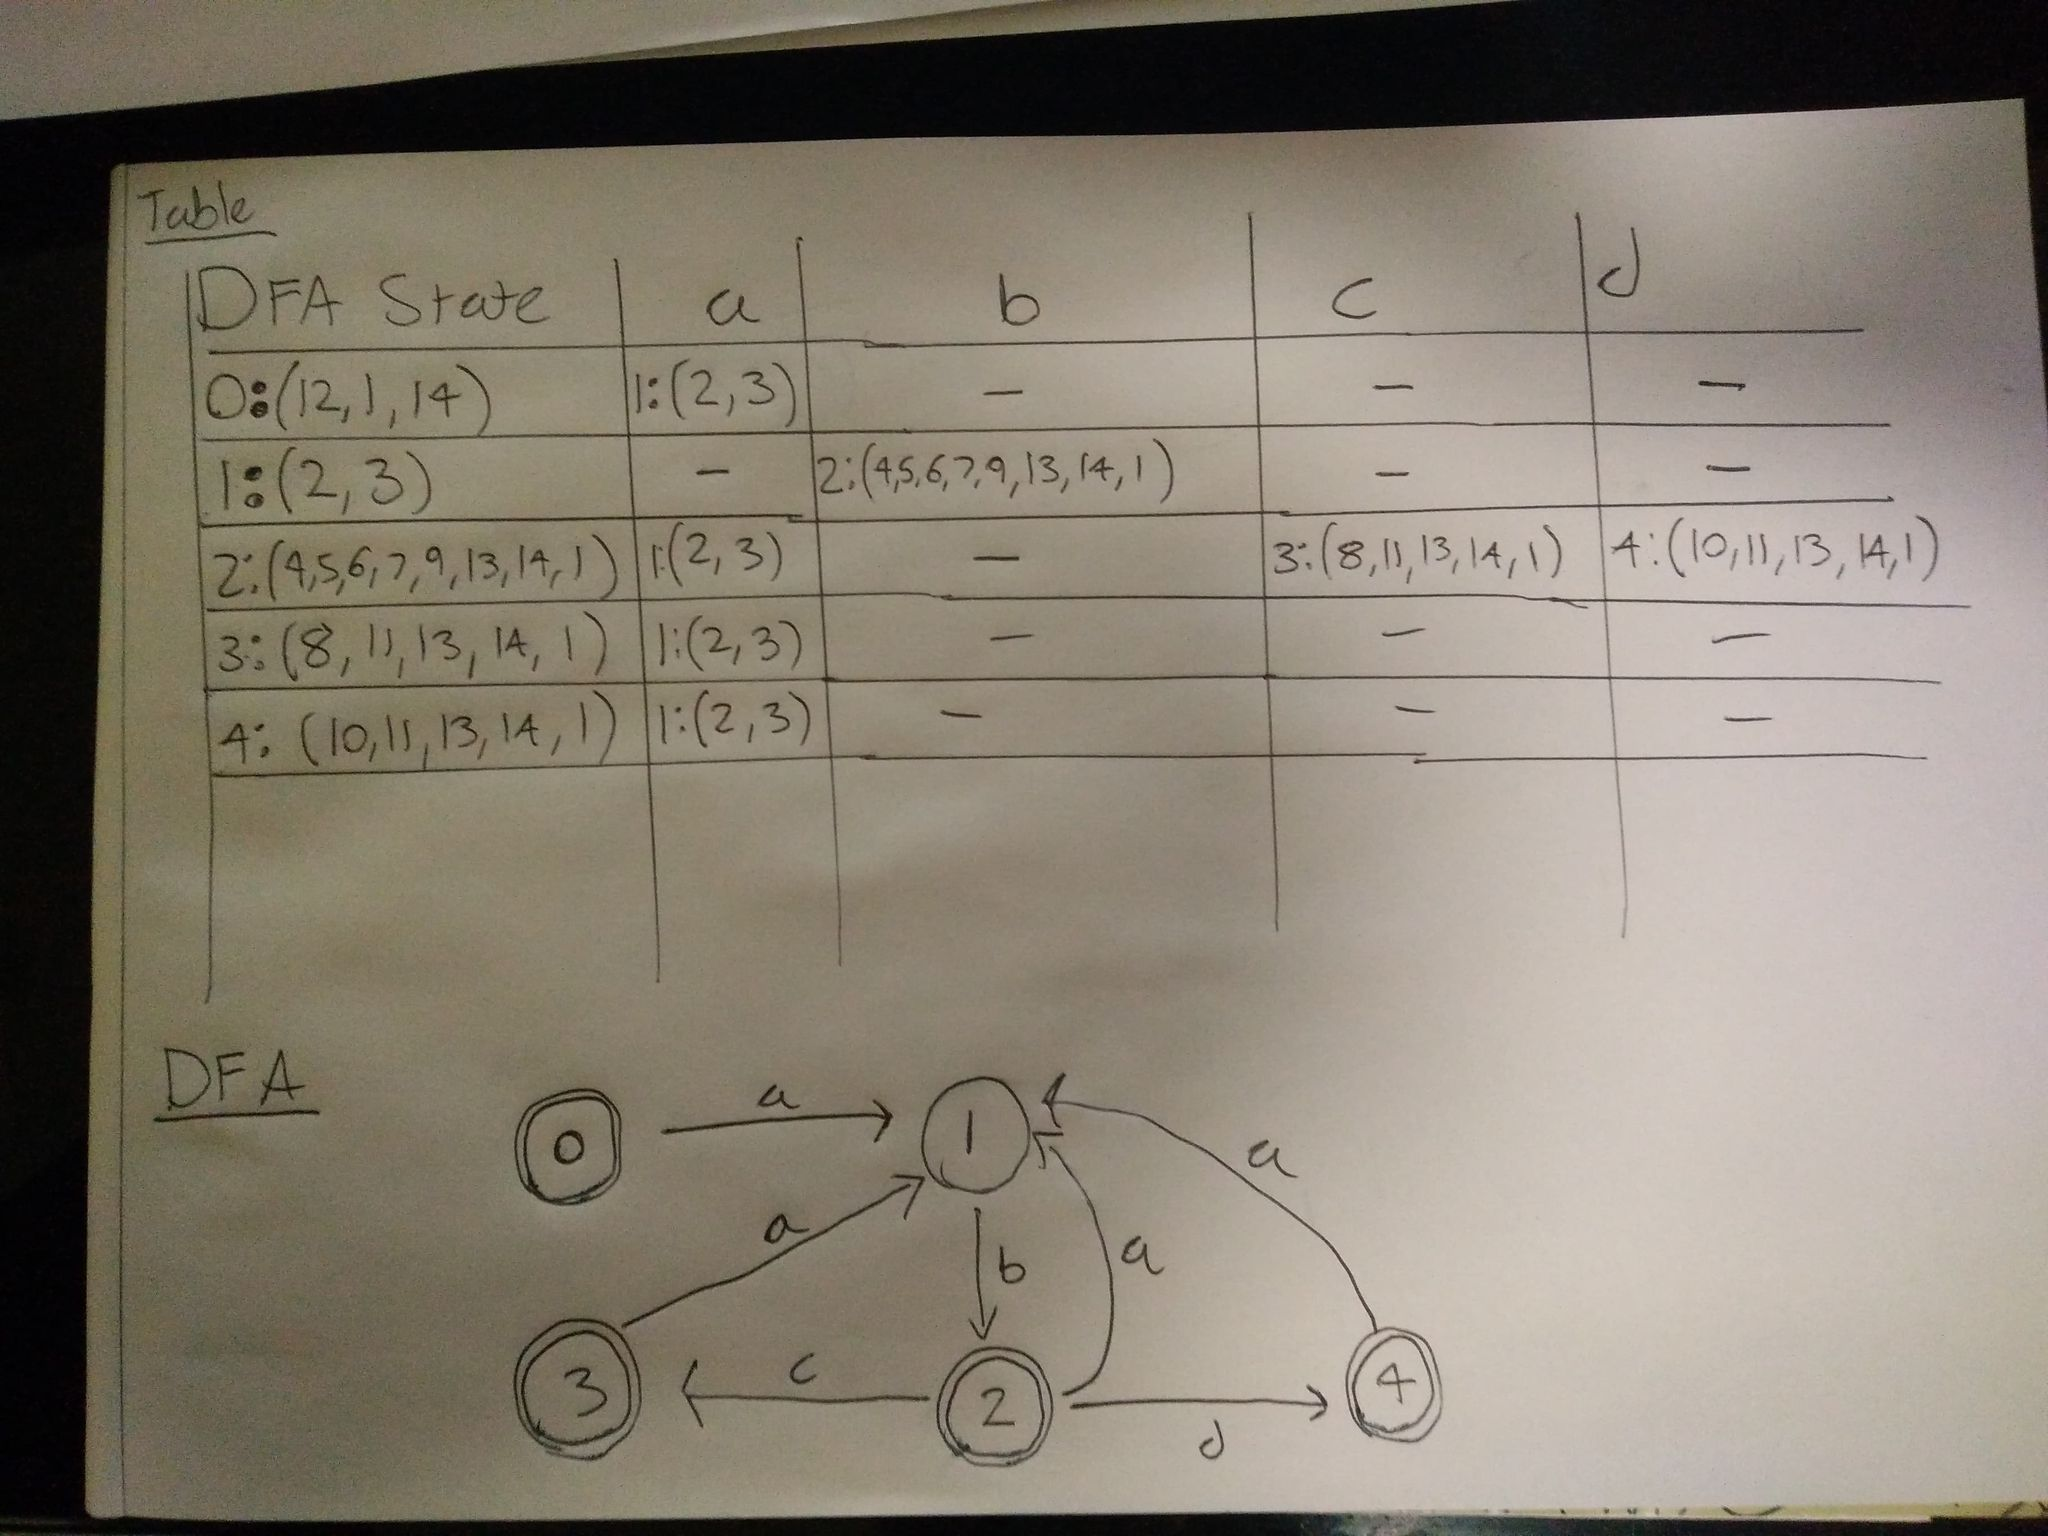 Table
DFA State a b c d
0:(12,1,14) 1:(2,3) - - -
1:(2,3) - 2:(4,5,6,7,9,13,14,1) - -
2:(4,5,6,7,9,13,14,1) 1:(2,3) - 3:(8,11,13,14,1) 4:(10,11,13,14,1)
3:(8,11,13,14,1) 1:(2,3) - - -
4:(10,11,13,14,1) 1:(2,3) - - -
DFA
a
0 1
a
a
a
b
c
3 2 4
d